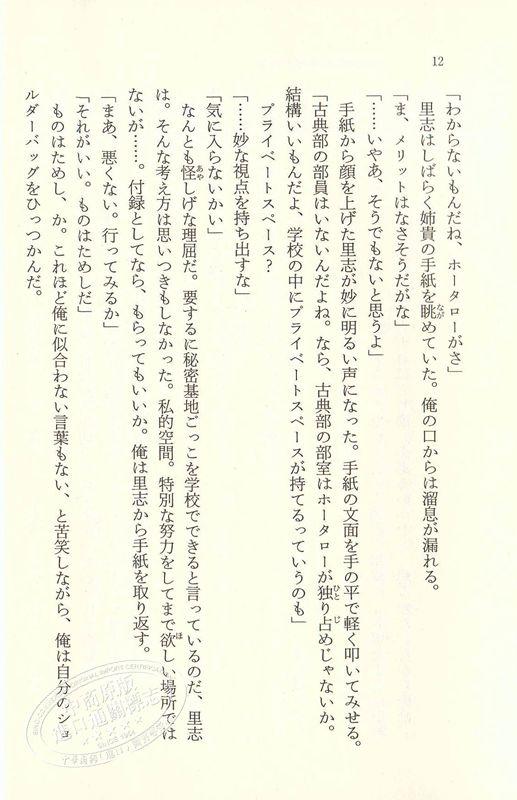 12
「わからないもんだね、ホータローがさ」
里志はしばらく姉貴の手紙を眺めていた。俺の口からは溜息が漏れる。
「ま、メリットはなさそうだがな」
「……いやあ、そうでもないと思うよ」
手紙から顔を上げた里志が妙に明るい声になった。手紙の文面を手の平で軽く叩いてみせる。
「古典部の部員はいないんだよね。なら、古典部の部室はホータローが独り占めじゃないか。
結構いいもんだよ、学校の中にプライベートスペースが持てるっていうのも」
プライベートスペース?
「……妙な視点を持ち出すな」
「気に入らないかい」
なんとも怪しげな理屈だ。要するに秘密基地ごっこを学校でできると言っているのだ、里志
は。そんな考え方は思いつきもしなかった。私的空間。特別な努力をしてまで欲しい場所では
ないが……。付録としてなら、もらってもいいか。俺は里志から手紙を取り返す。
「まあ、悪くない。行ってみるか」
「それがいい。ものはためしだ」
ものはためし、か。これほど俺に似合わない言葉もない、と苦笑しながら、俺は自分のショ
ルダーバッグをひっつかんだ。
中商原版
進口通關標志